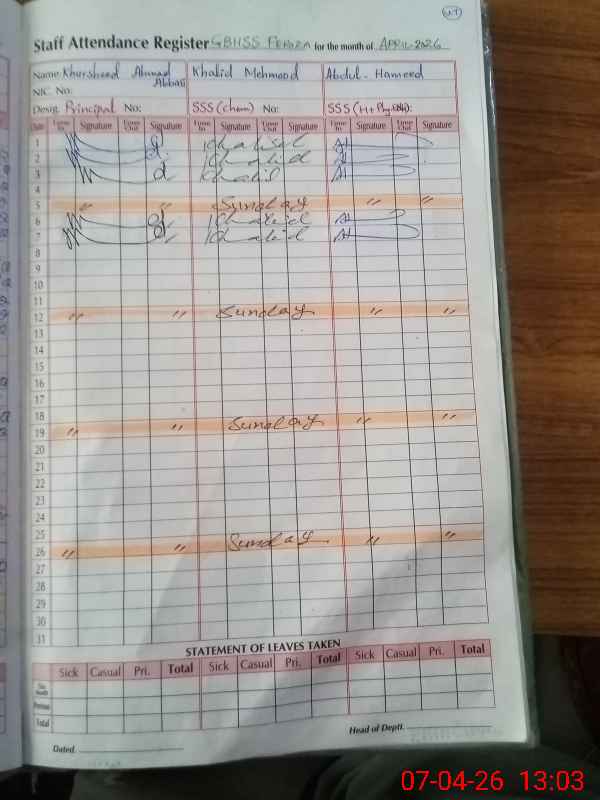 Staff Attendance Register GBHSS PEROZA for the month of APRIL-2026
Name Khursheed Ahmad Abbasi Khalid Mehmood Abdul-Hameed
NIC. No:
Desig. Principal No: SSS (Chem) No: SSS (H+Phy.Edu):
Date Time In Signature Time Out Signature Time In Signature Time Out Signature Time In Signature Time Out Signature
1 Khalid AH
2 Khalid AH
3 Khalid AH
4
5 〃 〃 Sunday 〃 〃
6 Khalid AH
7 Khalid AH
8
9
10
11
12 〃 〃 Sunday 〃 〃
13
14
15
16
17
18
19 〃 〃 Sunday 〃 〃
20
21
22
23
24
25
26 〃 〃 Sunday 〃 〃
27
28
29
30
31
STATEMENT OF LEAVES TAKEN
Sick Casual Pri. Total Sick Casual Pri. Total Sick Casual Pri. Total
This Month
Previous
Total
Head of Deptt.
Dated.
07-04-26 13:03